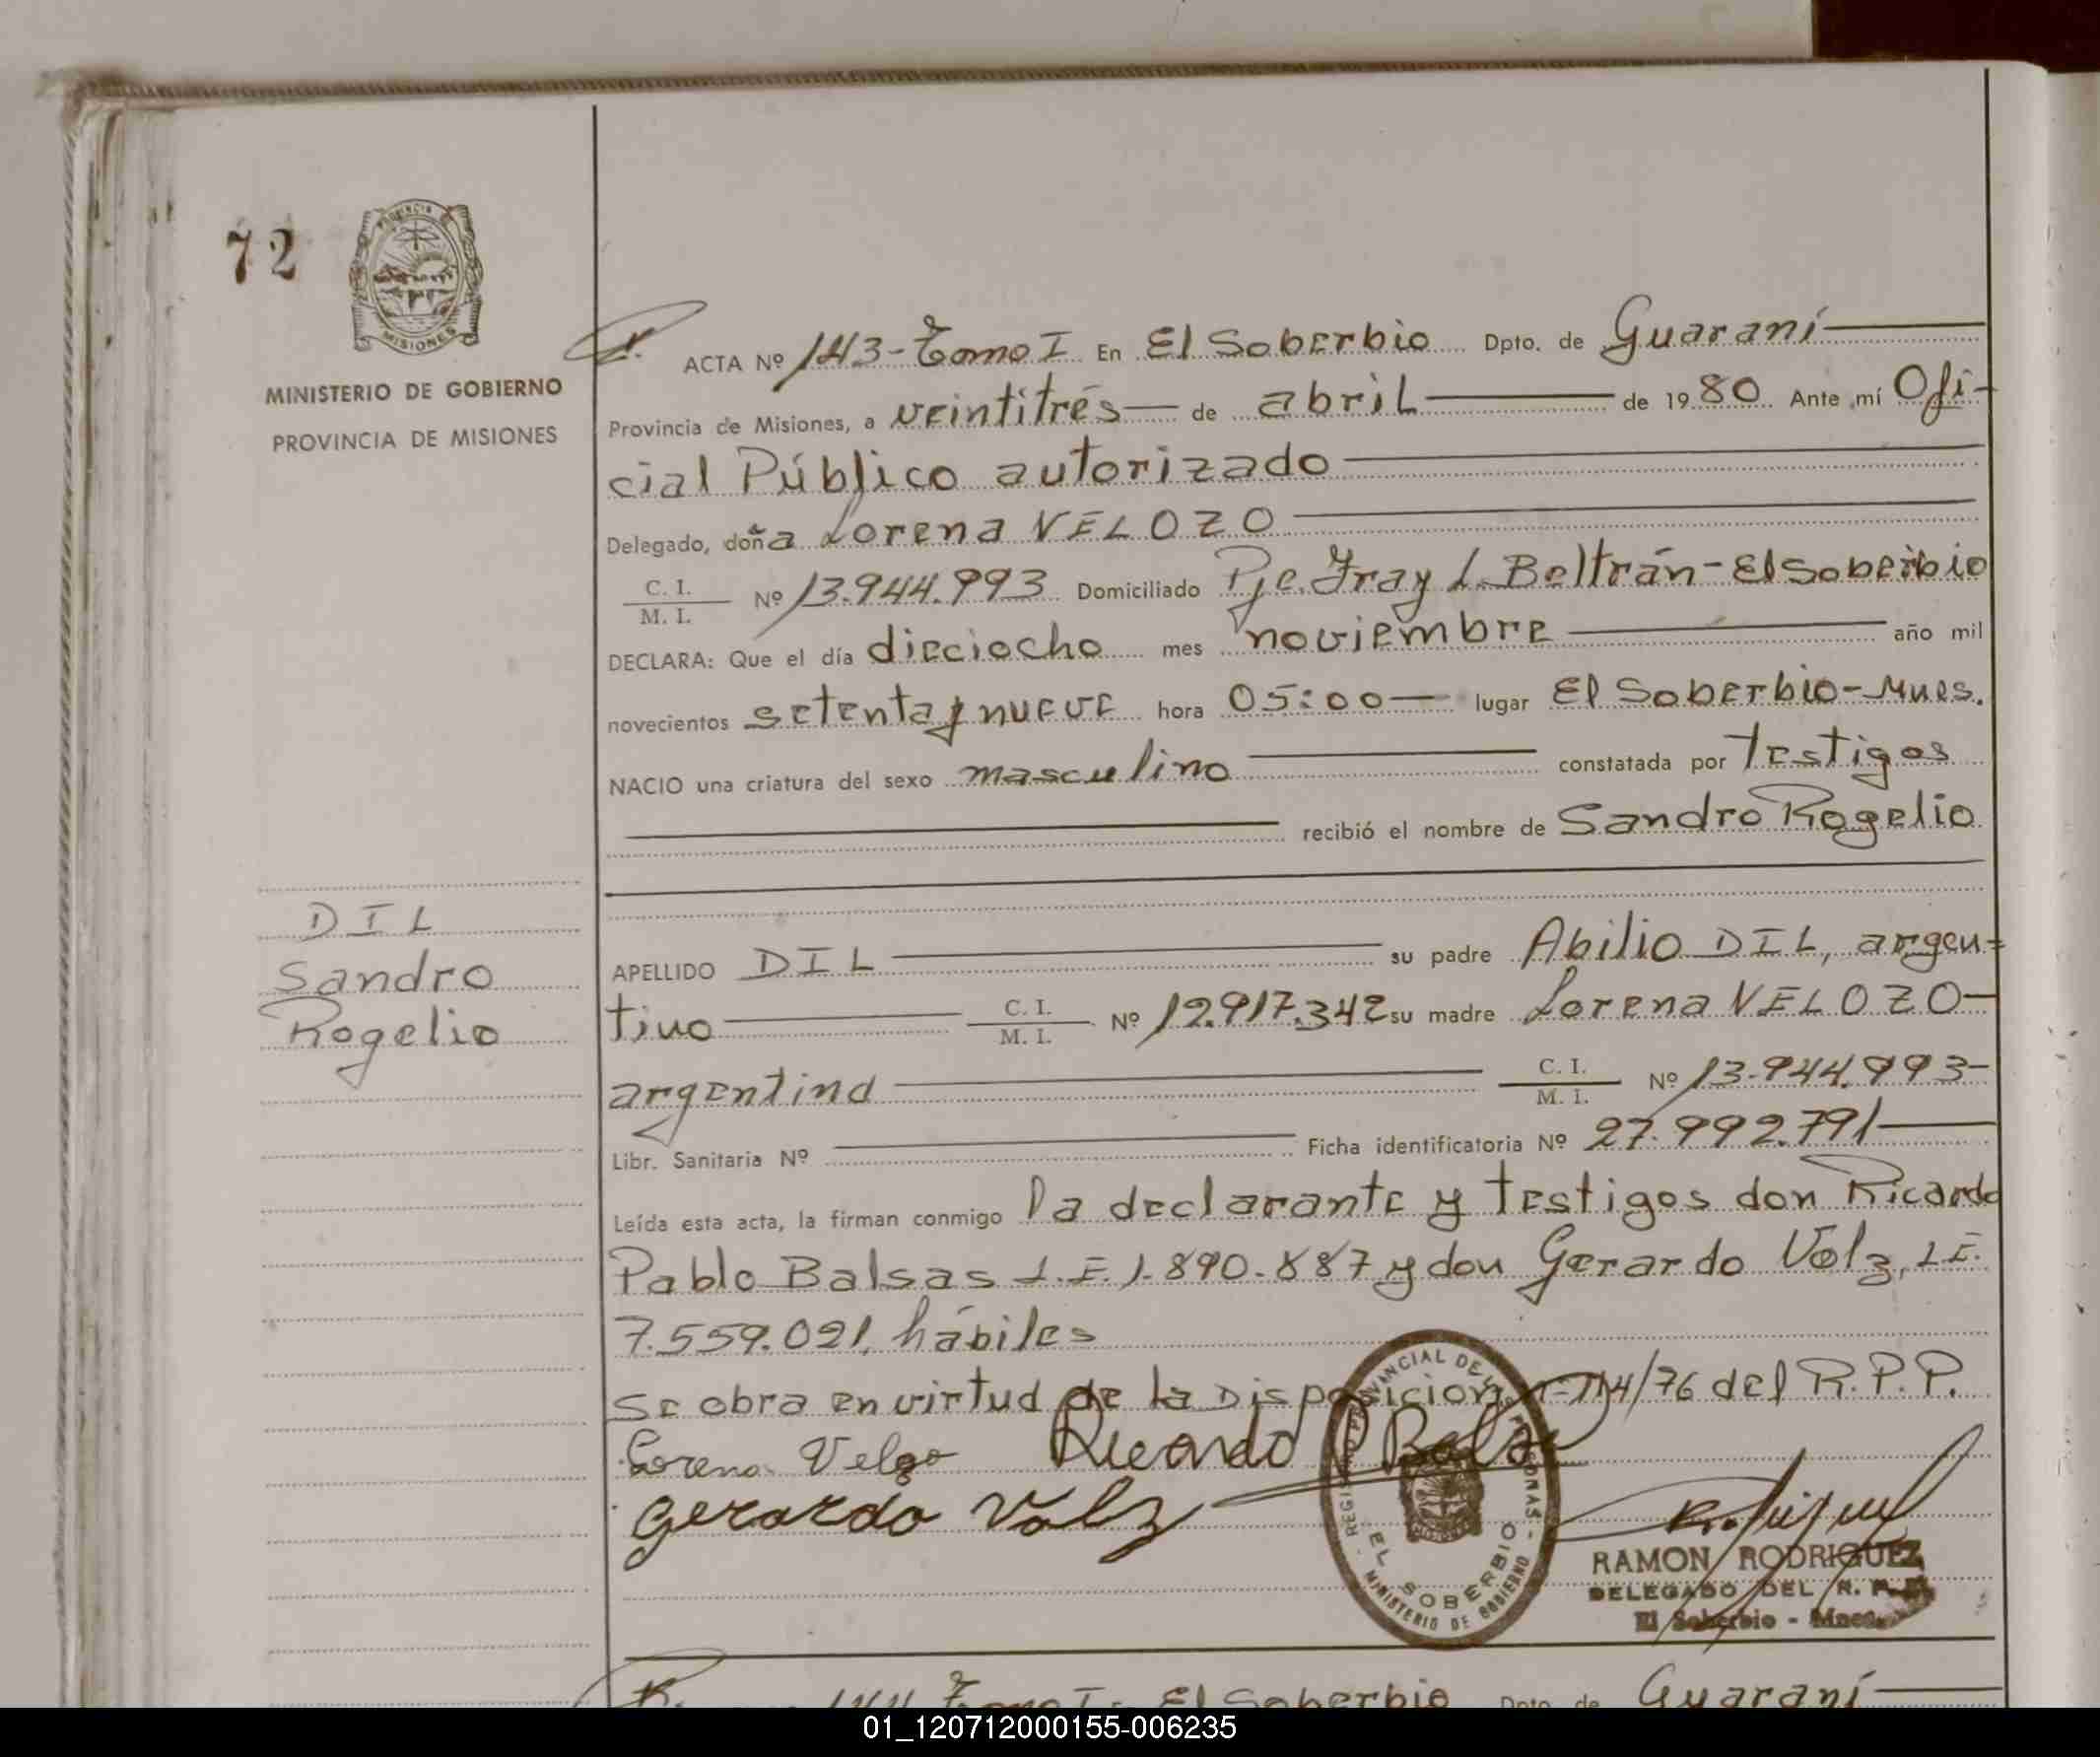 72
PROVINCIA
MISIONES
MINISTERIO DE GOBIERNO
PROVINCIA DE MISIONES
ACTA Nº 143-Tomo I En El Soberbio Dpto. de Guaraní
Provincia de Misiones, a veintitrés de abril de 1980 Ante mí Ofi-
cial Público autorizado
Delegado, doña Lorena VELOZO
C. I.
M. I. Nº 13.944.993 Domiciliado Pje. Fray L. Beltrán-El Soberbio
DECLARA: Que el día dieciocho mes noviembre año mil
novecientos setenta y nueve hora 05:00 lugar El Soberbio-Mnes.
NACIO una criatura del sexo masculino constatada por testigos
recibió el nombre de Sandro Rogelio
DIL
Sandro
Rogelio
APELLIDO DIL su padre Abilio DIL, argen=
tino C. I.
M. I. Nº 12.917.342 su madre Lorena VELOZO-
argentina C. I.
M. I. Nº 13.944.993-
Libr. Sanitaria Nº Ficha identificatoria Nº 27.992.791
Leída esta acta, la firman conmigo la declarante y testigos don Ricardo
Pablo Balsas L.E. 1.890.887 y don Gerardo Volz, L.E.
7.559.021, hábiles
Se obra en virtud de la Disposición 114/76 del R.P.P.
Lorena Velozo Ricardo P Balsa
Gerardo Volz
REGISTRO PROVINCIAL DE LAS PERSONAS
EL SOBERBIO
MINISTERIO DE GOBIERNO
RAMON RODRIGUEZ
DELEGADO DEL R. P.
El Soberbio - Mnes.
144 Tomo I El Soberbio Dpto. de Guaraní
01_120712000155-006235